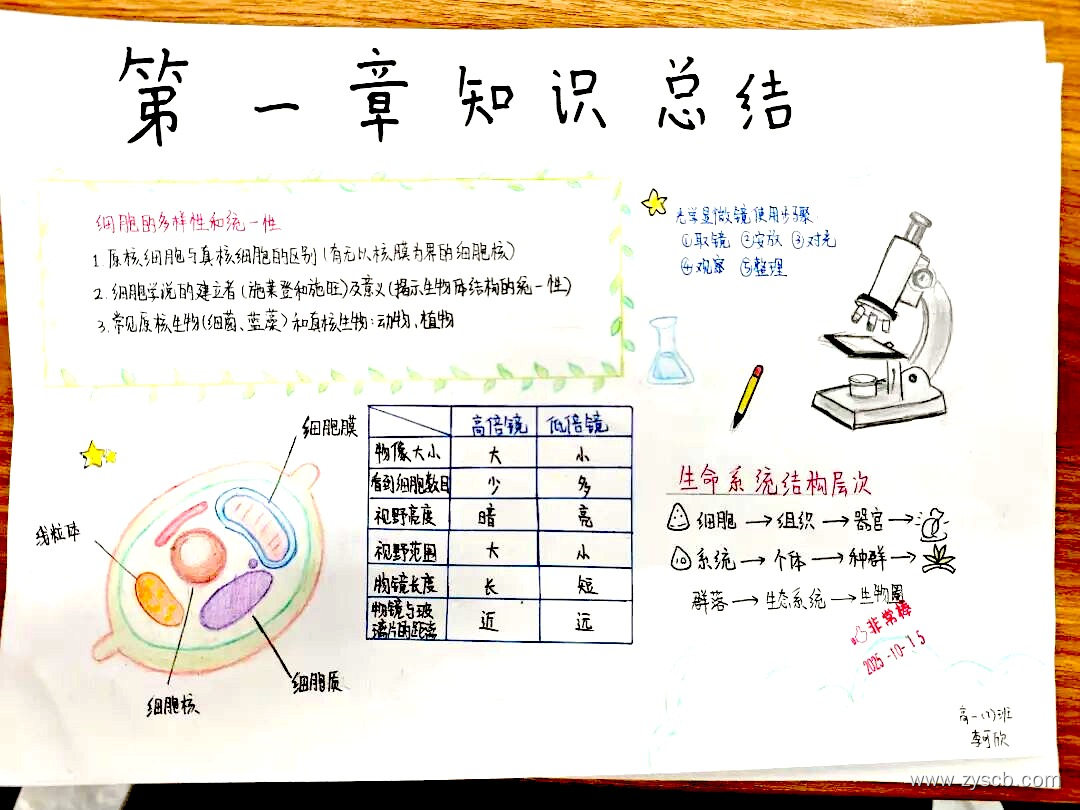 第一章知识总结
细胞的多样性和统一性
1.原核细胞与真核细胞的区别(有无以核膜为界的细胞核)
2.细胞学说的建立者(施莱登和施旺)及意义(揭示生物体结构的统一性)
3.常见原核生物(细菌、蓝藻)和真核生物:动物、植物
光学显微镜使用步骤
①取镜 ②安放 ③对光
④观察 ⑤整理
细胞膜
线粒体
细胞核
细胞质
高倍镜 低倍镜
物像大小 大 小
看到细胞数目 少 多
视野亮度 暗 亮
视野范围 大 小
物镜长度 长 短
物镜与玻
璃片的距离 近 远
生命系统结构层次
细胞→组织→器官→
系统→个体→种群→
群落→生态系统→生物圈
非常棒
2025-10-15
高一(1)班
李可欣
www.zyscb.com